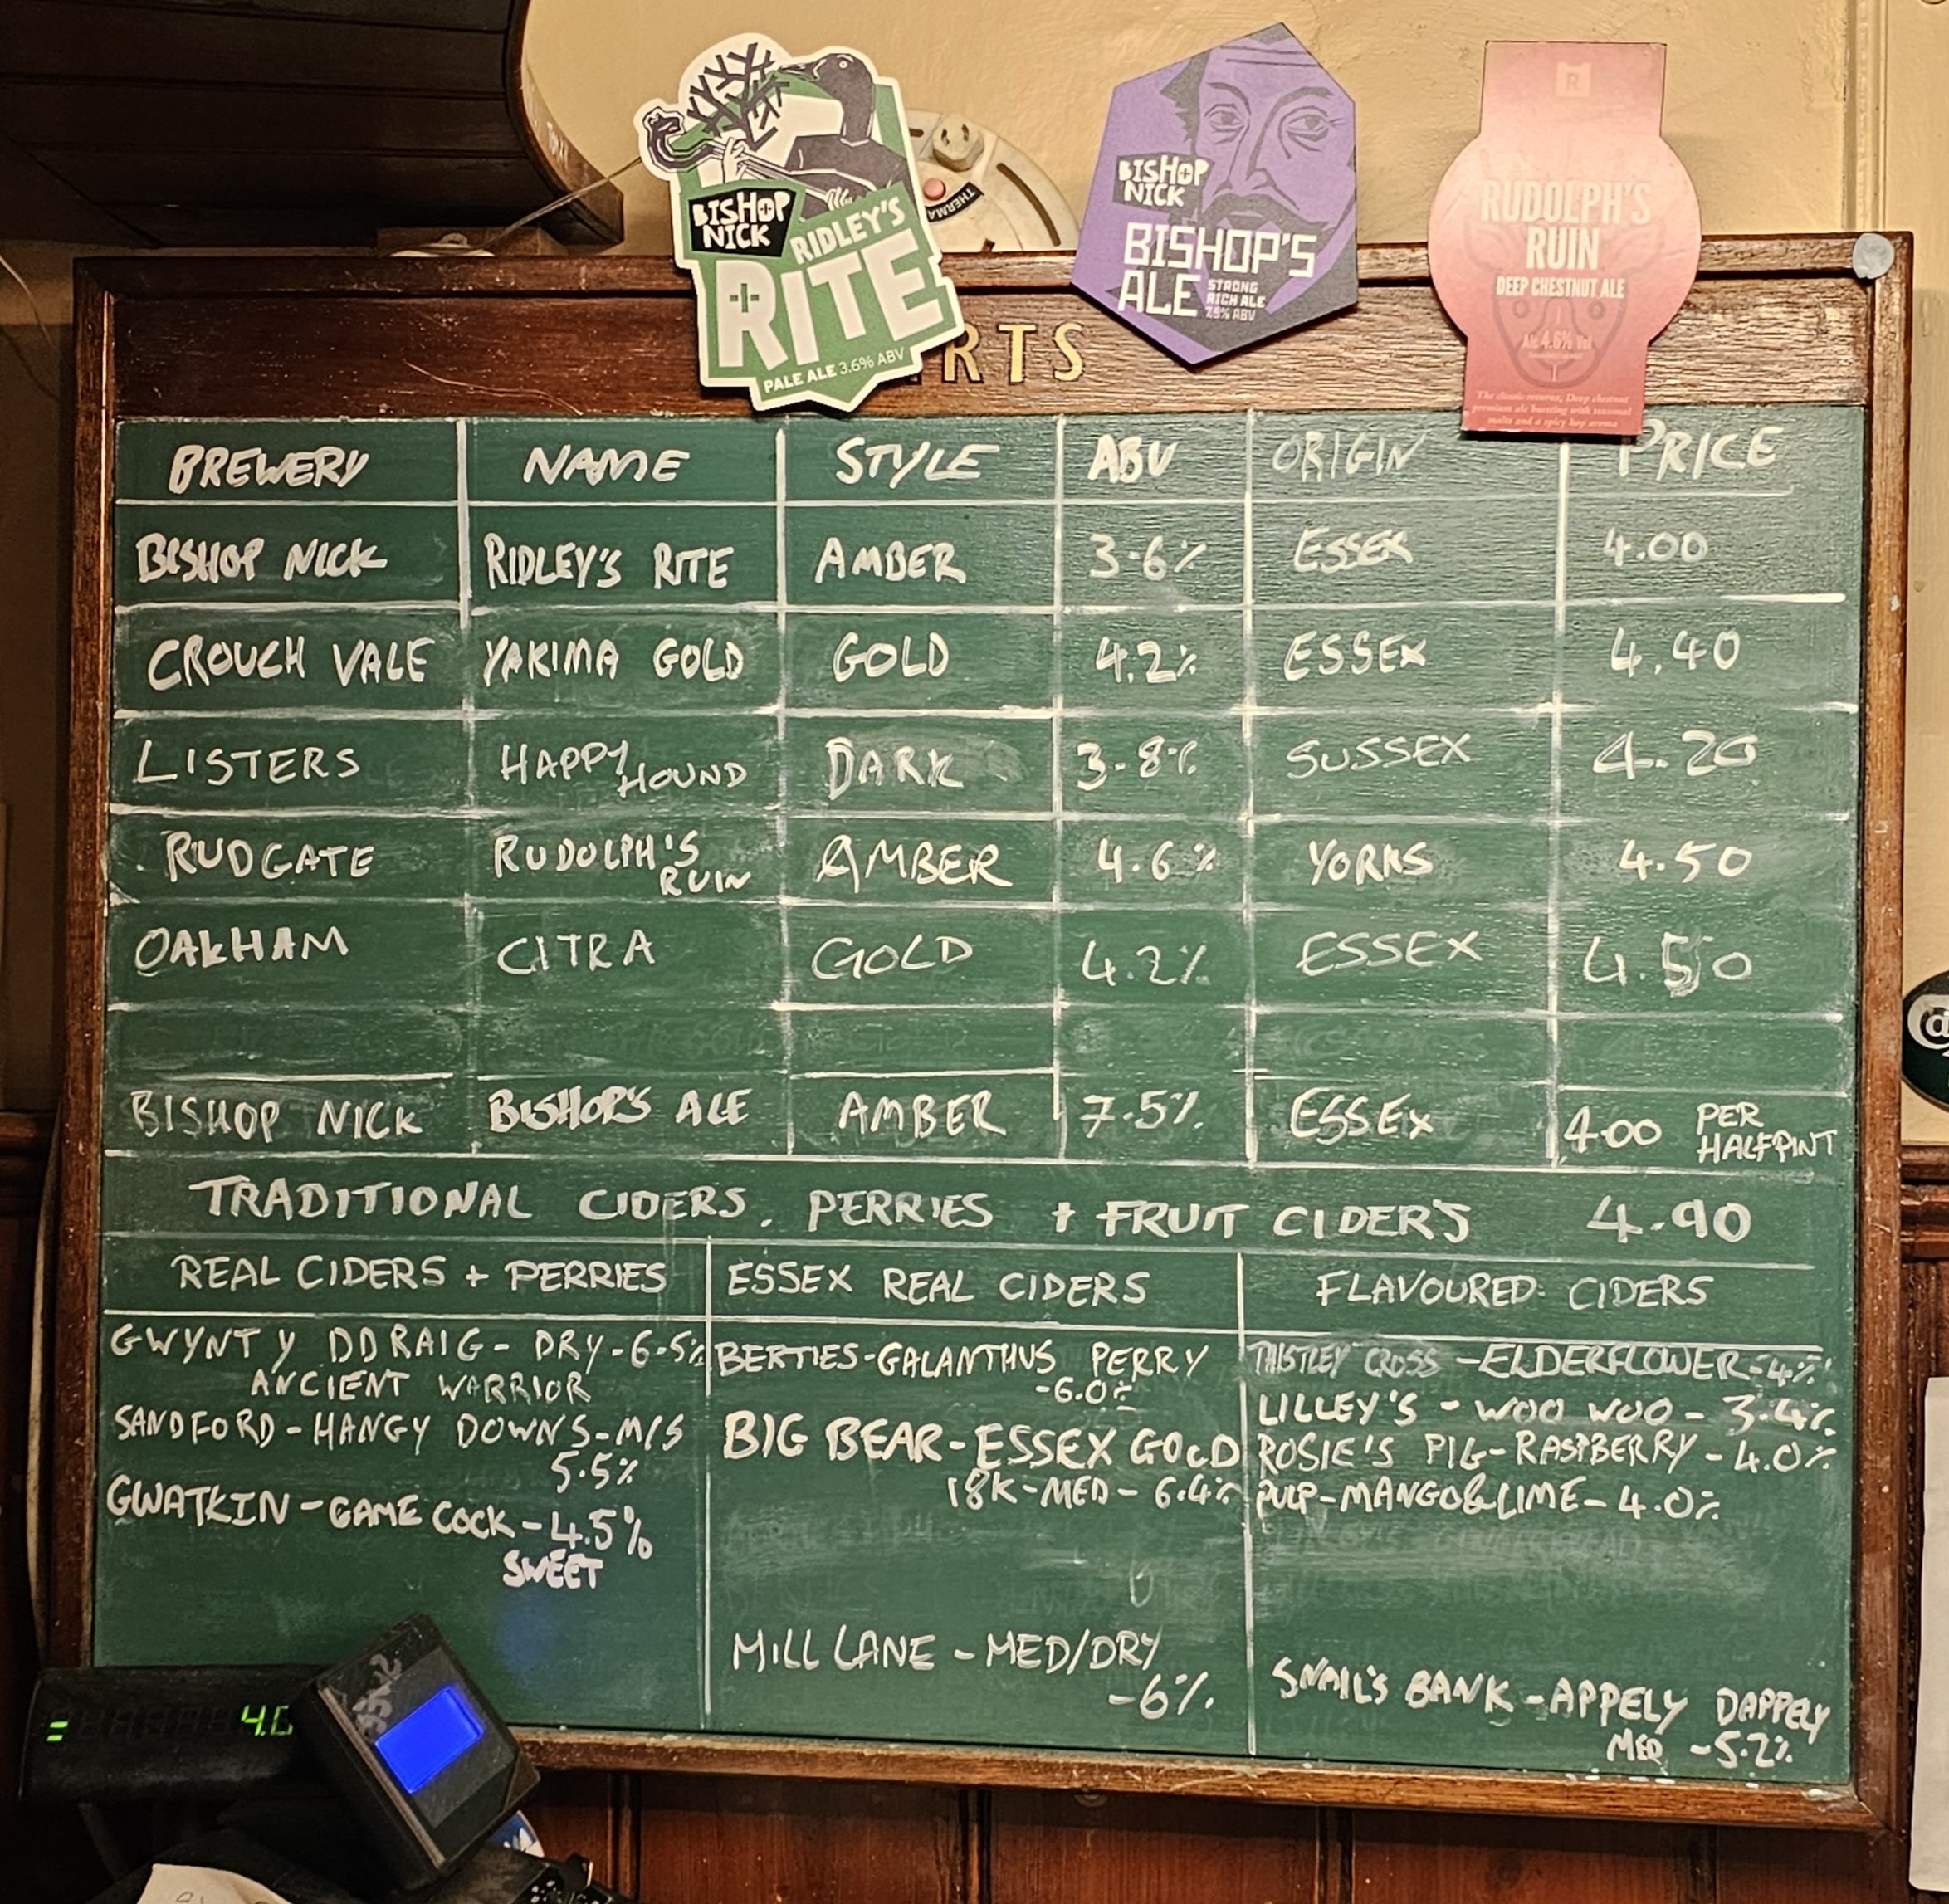 BISHOP NICK
RIDLEY'S
RITE
PALE ALE 3.6% ABV
THERMA
BISHOP NICK
BISHOP'S ALE
STRONG RICH ALE 7.5% ABV
R
RUDOLPH'S
RUIN
DEEP CHESTNUT ALE
Alc 4.6% Vol
The classic returns, Deep chestnut
premium ale bursting with seasonal
malts and a spicy hop aroma
RTS
BREWERY NAME STYLE ABV ORIGIN PRICE
BISHOP NICK RIDLEY'S RITE AMBER 3.6% ESSEX 4.00
CROUCH VALE YAKIMA GOLD GOLD 4.2% ESSEX 4.40
LISTERS HAPPY HOUND DARK 3.8% SUSSEX 4.20
RUDGATE RUDOLPH'S RUIN AMBER 4.6% YORKS 4.50
OAKHAM CITRA GOLD 4.2% ESSEX 4.50
BISHOP NICK BISHOP'S ALE AMBER 7.5% ESSEX 4.00 PER HALFPINT
TRADITIONAL CIDERS, PERRIES + FRUIT CIDERS 4.90
REAL CIDERS + PERRIES
GWYNT Y DDRAIG - DRY - 6.5%
ANCIENT WARRIOR
SANDFORD - HANGY DOWNS - M/S
5.5%
GWATKIN - GAME COCK - 4.5%
SWEET
ESSEX REAL CIDERS
BERTIES - GALANTHUS PERRY
- 6.0%
BIG BEAR - ESSEX GOLD
18K - MED - 6.4%
MILL LANE - MED/DRY
- 6%
FLAVOURED CIDERS
THISTLEY CROSS - ELDERFLOWER - 4%
LILLEY'S - WOO WOO - 3.4%
ROSIE'S PIG - RASPBERRY - 4.0%
PULP - MANGO & LIME - 4.0%
SNAIL'S BANK - APPELY DAPPELY
MED - 5.2%